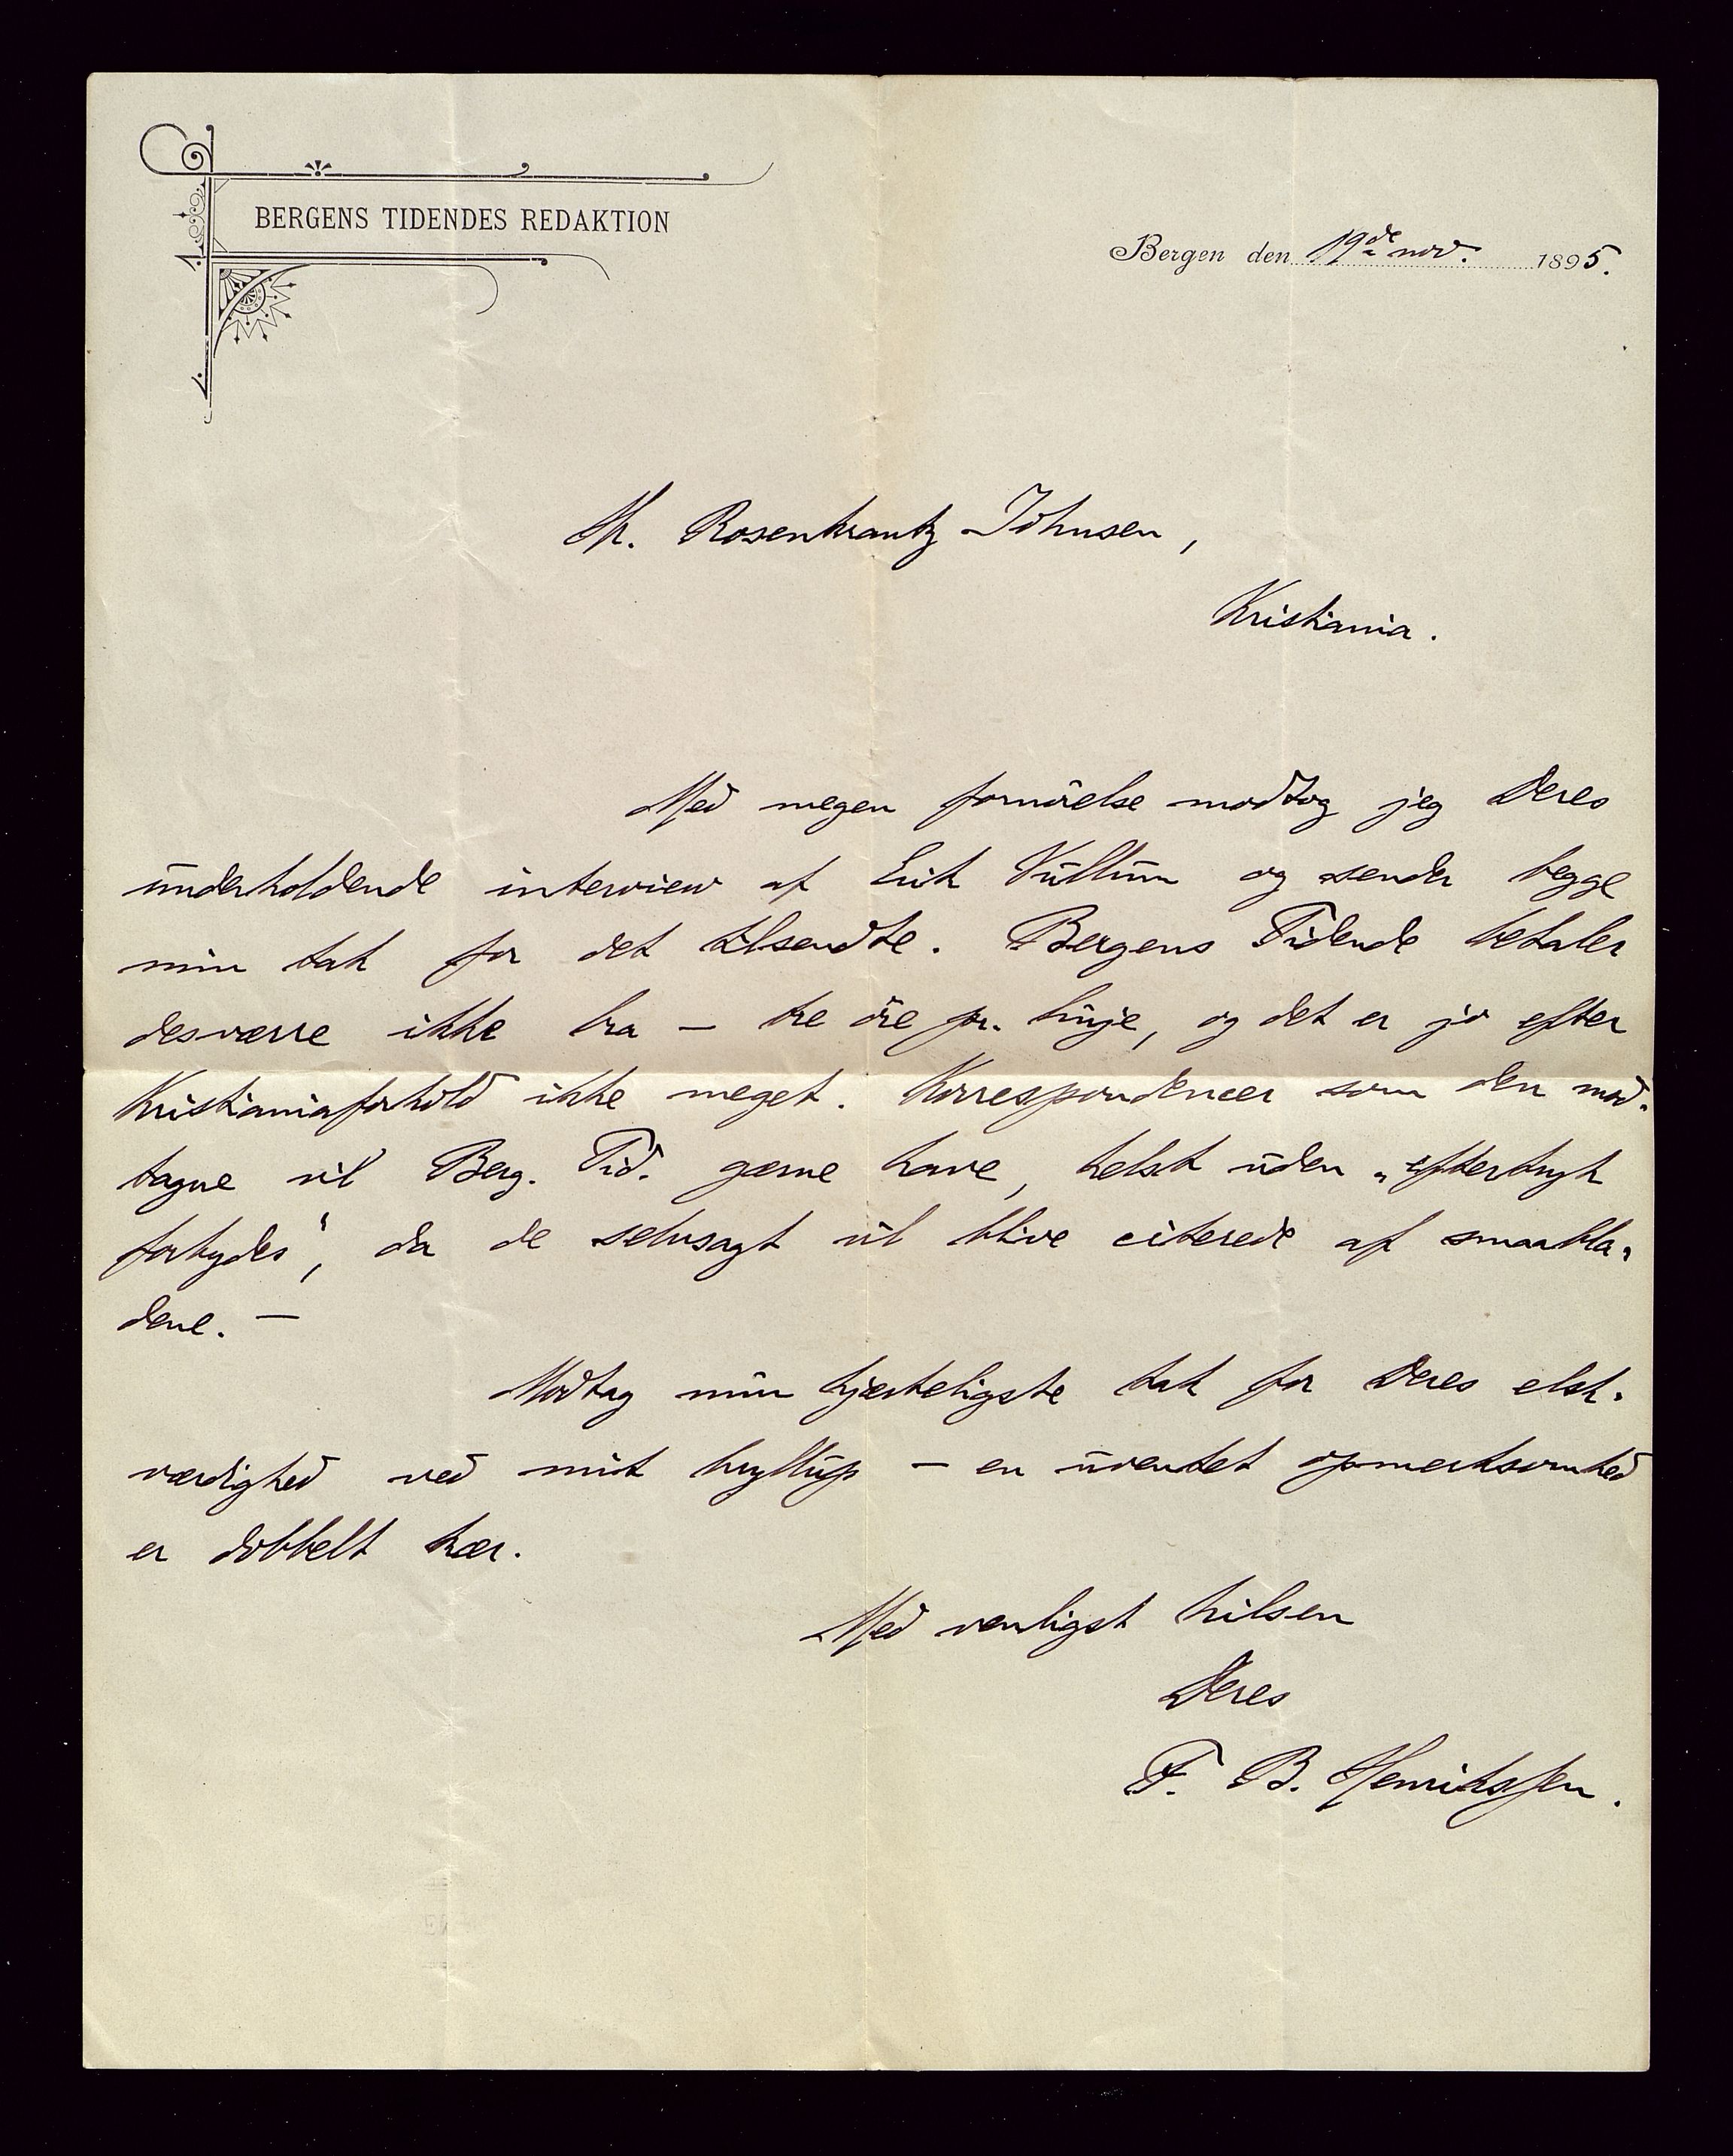 BERGENS TIDENDES REDAKTION
Bergen den 19de nov. 1895.
Hr. Rosenkrantz Johnsen,
Kristiania.
Med megen fornöielse modtog jeg Deres
underholdende interview af Erik Vullum og sender begge
min tak for det tilsendte. Bergens Tidende betaler
desværre ikke bra – tre öre pr. linje, og det er jo efter
Kristianiaforhold ikke meget. Korrespondencer som den mod-
tagne vil Berg. Tid. gærne have, helst uden „eftertryk
forbydes“, da de selvsagt vil blive citerede af smaabla-
dene. –
Modtag min hjærteligste tak for Deres elsk-
værdighed ved mit bryllup – en uventet opmerksomhed
er dobbelt kær.
Med venligst hilsen
Deres
F. B. Henrikssen.